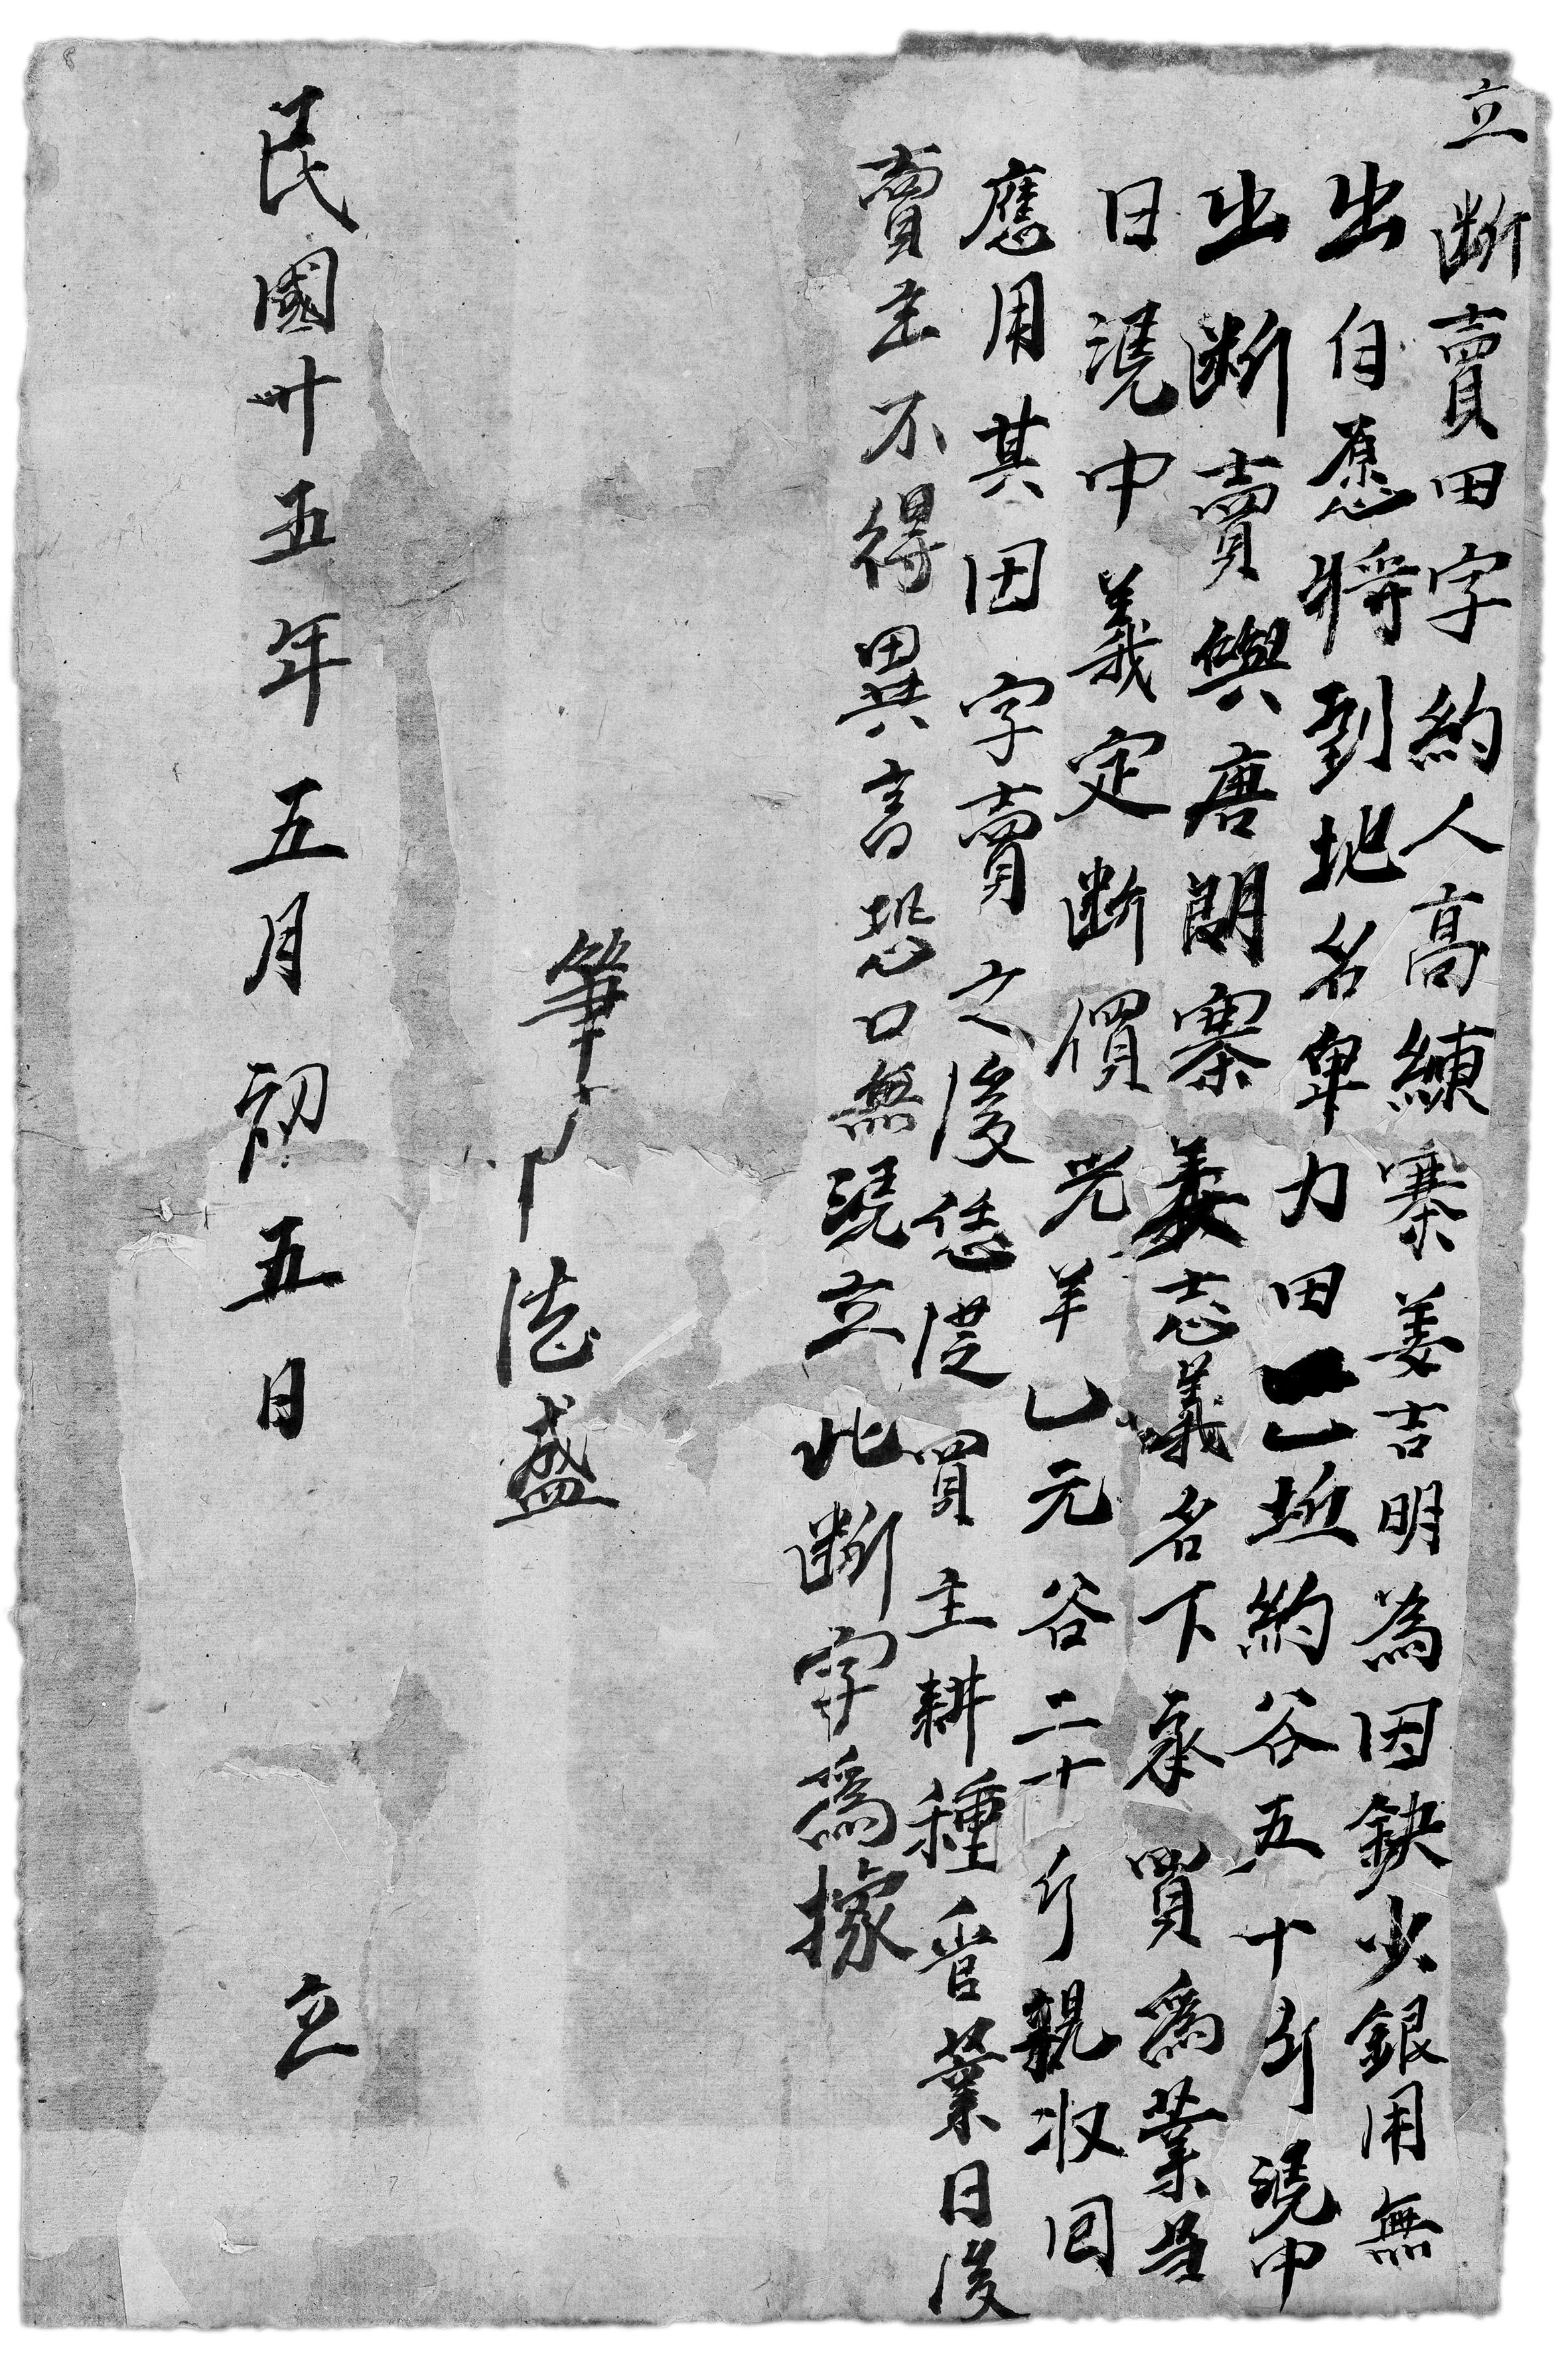 立断賣田字約人高練寨姜吉明為因鈌少銀用無
出自愿將到地名卑力田乚坵約谷五十斤憑中
出断賣與唐朗寨姜志義名下承買為業当
日憑中義定断價光羊乚元谷二十斤親收回
應用其田字賣之後恁從買主耕種管業日後
賣主不得異言恐口無憑立此断字為據
筆 德盛
民國卅五年五月初五日 立